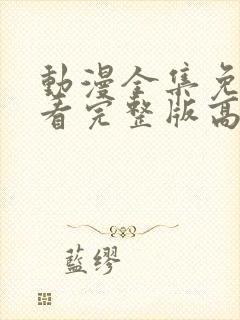 動漫全集免
看完整版高
藍缪